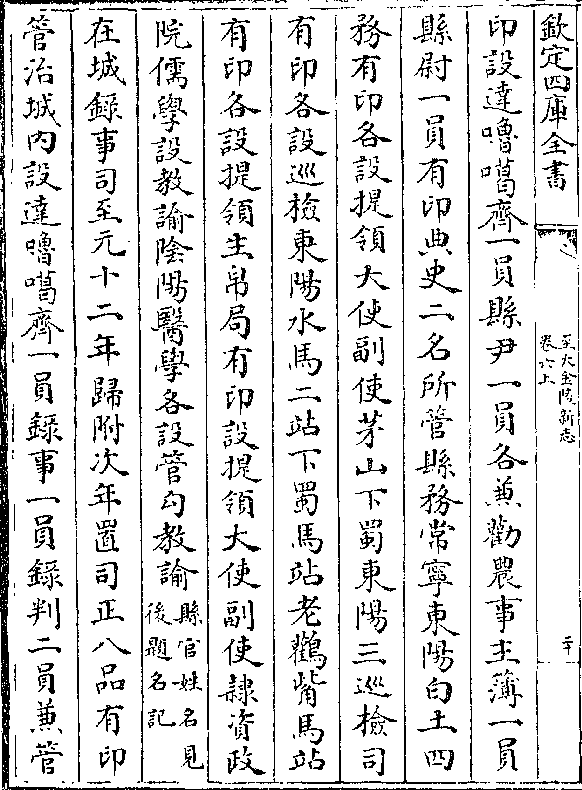 欽定四庫全書
至大金陵新志
卷六上
二十
印設達嚕噶齊一員縣尹一員各兼勸農事主簿一員
縣尉一員有印典史二名所管縣務常寧東陽白土四
務有印各設提領大使副使茅山下蜀東陽三巡檢司
有印各設巡檢東陽水馬二站下蜀馬站老鸛觜馬站
有印各設提領生帛局有印設提領大使副使隷資政
院儒學設教諭陰陽醫學各設管勾教諭縣官姓名見
後題名記
在城錄事司至元十二年歸附次年置司正八品有印
管治城内設達嚕噶齊一員錄事一員錄判二員兼管